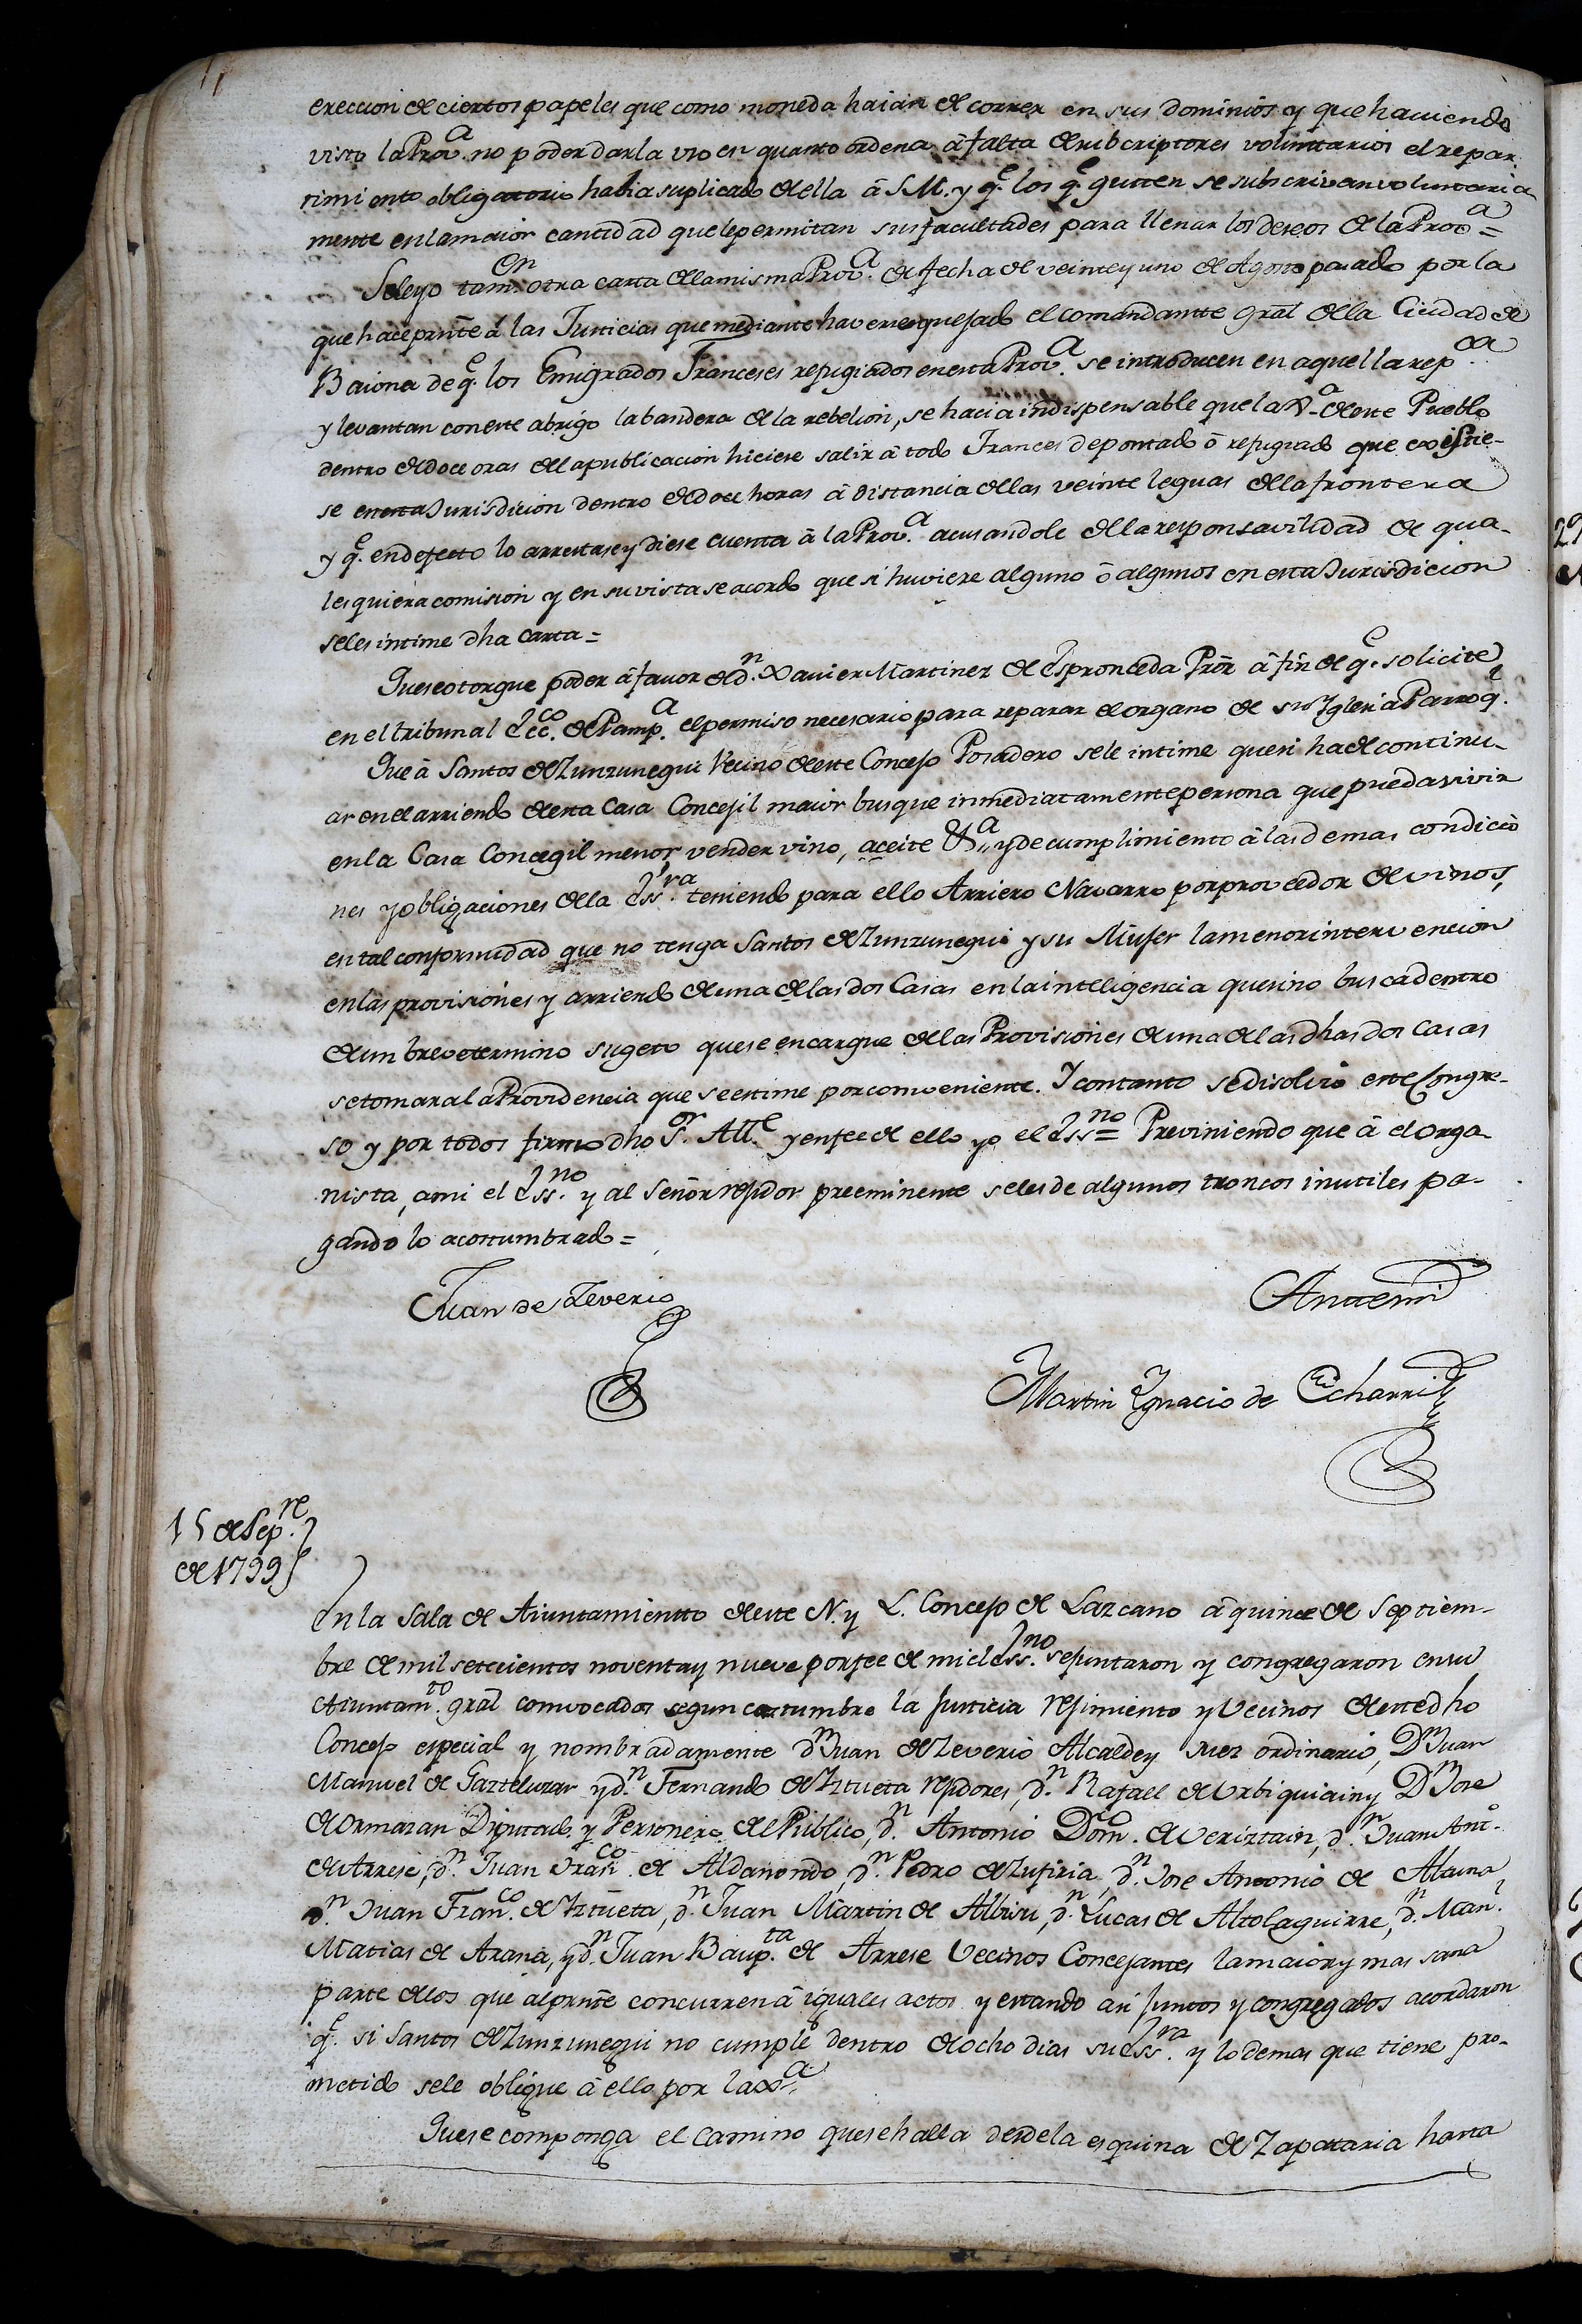 ereccion de ciertos papeles que como moneda haian de correr en sus dominios y que haviendo
visto la Prov.a no poder darla uso en quanto ordena â falta de subscriptores voluntarios el repar
timiento obligatorio habia suplicado de ella â S.M. y q.e los q.e gusten se subscrivan voluntaria
mente en la maior cantidad que le permitan sus facultades para llenar los deseos de la Prov.a =
Se leyo tam.en otra carta de la misma Prov.a de fecha de veinte y uno de Agosto pasado por la
que hace prnte â las Justicias que mediante haverse quejado el comandante gral de la Ciudad de
Baiona de q.e los Emigrados Franceses refugiados en esta Prov.a se introducen en aquella rep.ca
y levantan con este abrigo la bandera de la rebelion, se hacia indispensable que la X.a de este Pueblo
dentro de doce oras de la publicacion hiciese salir â todo Frances deportado ô refugiado que existie-
se en esta Jurisdicion dentro de doce horas â distancia de las veinte leguas de la frontera
y q.e en defecto lo arrestase y diese cuenta â la Prov.a acusandole de la responsavilidad de qua-
lesquiera comision y en su vista se acordo que si huviere alguno ô algunos en esta Jurisdicion
se les intime dha carta =
Que se otorgue poder â favor de d.n Xavier Martinez de Espronceda Prôr â fin de q.e solicite
en el tribunal Ecc.co de Pamp.a el permiso necesario para reparar el organo de su Yglesia Parroq.l
Que â Santos de Zunzunegui Vecino de este Concejo Posadero se le intime que si ha de continu-
ar en el arriendo de esta Casa Concejil maior busque inmediatamente persona que pueda vivir
en la Casa Concegil menor, vender vino, aceite &.a y de cumplimiento â las demas condicio
nes y obligaciones de la Ess.ra teniendo para ello Arriero Navarro por proveedor de vinos,
en tal conformidad que no tenga Santos de Zunzunegui y su Mujer la menor intervencion
en las provisiones y arriendo de una de las dos Casas en la inteligencia que si no busca dentro
de un breve termino sugeto que se encargue de las Provisiones de una de las dhas dos Casas
se tomara la Providencia que se estime por conveniente. Y con tanto se disolvio este Congre-
so y por todos firmo dho S.or All.e y en fee de ello yo el Ess.no = Previniendo que â el orga-
nista, a mi el Ess.no y al Señor rejidor preeminente se les de algunos troncos inutiles pa-
gando lo acostumbrado =
Juan de Zeverio
Ante mi
Martin Ygnacio de Echarri
15 de Sep.re
de 1799
En la Sala de Aiuntamiento de este N. y L. Concejo de Lazcano â quince de Septiem-
bre de mil setecientos noventa y nueve por fee de mi el Ess.no se juntaron y congregaron en su
Aiuntam.to gral convocados segun costumbre la Justicia rejimiento y Vecinos de este dho
Concejo especial y nombradamente d.n Juan de Zeverio Alcalde y Juez ordinario, D.n Juan
Manuel de Gazteluzar y d.n Fernando de Yztueta rejidores, d.n Rafael de Urbiquiain y D.n Jose
de Ormazan Diputado y Personero del Publico, d.n Antonio Dom.o de Veriztain, d.n Juan Ant.o
de Arrese, d.n Juan Fran.co de Aldanondo, d.n Pedro de Zufiria, d.n Jose Antonio de Altuna
d.n Juan Fran.co de Yztueta, d.n Juan Martin de Albisu, d.n Lucas de Altolaguirre, d.n Man.l
Matias de Arana, y d.n Juan Baup.ta de Arrese Vecinos Concejantes la maior y mas sana
parte de los que al prnte concurren â iguales actos y estando asi juntos y congregados acordaron
q.e si Santos de Zunzunegui no cumple dentro de ocho dias su Ess.ra y lo demas que tiene pro-
metido se le oblique â ello por la X.a
Que se componga el Camino que se halla desde la esquina de Zapataria hasta